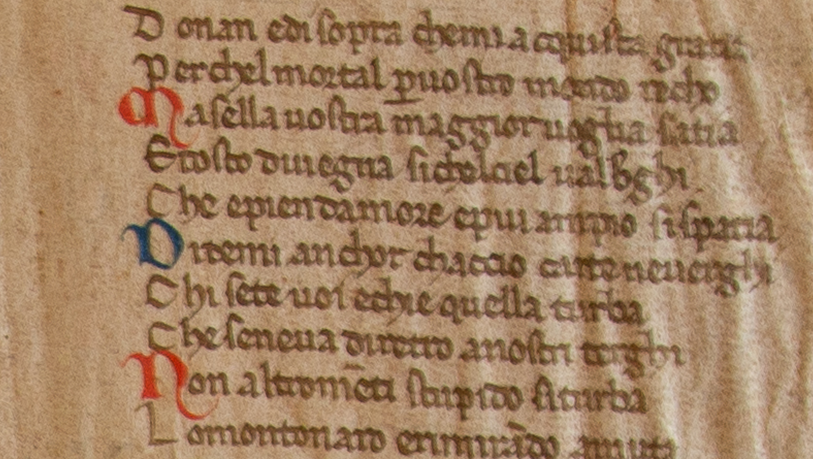 Donan edi sopra chemi acquista gratia
Perchel mortal p̲uostro mondo recho
Masella uostra maggior uoglia satia
Etosto diuegna sichelciel ualbghi
Che epiendamore epiu ampio sispatia
Ditemi anchor chaccio carte neuerghi
Chi sete uoi echie quella turba
Che seneua diretro anostri terghi
Non altromēti stupido siturba
Lomontonaro erimirādo amuta